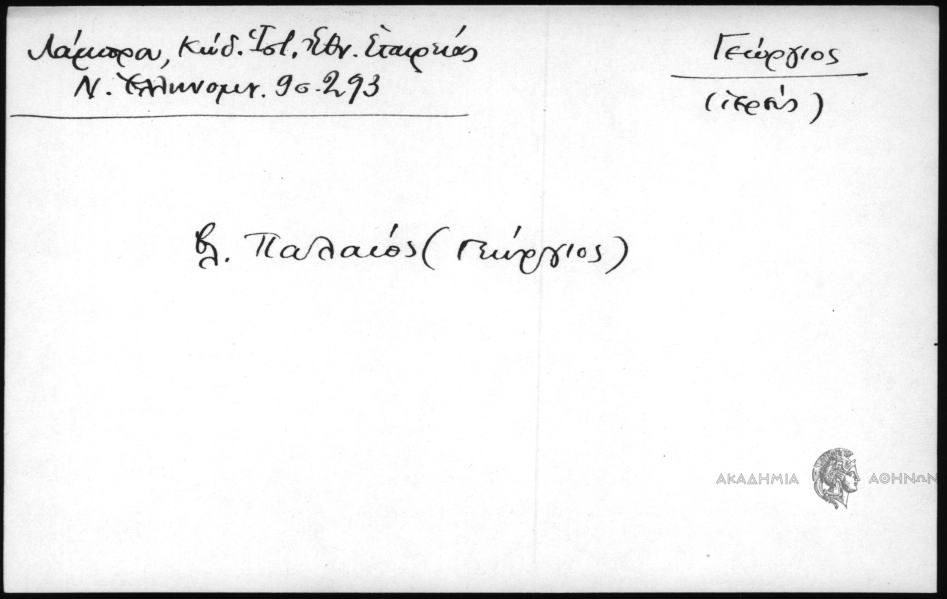 Λάμπρου, Κώδ. Ἱστ. Ἐθν. Ἑταιρείας
Ν. Ἑλληνομν. 9σ. 293
Γεώργιος
(ἱερεύς)
βλ. Παλαιός (Γεώργιος)
ΑΚΑΔΗΜΙΑ ΑΘΗΝΩΝ